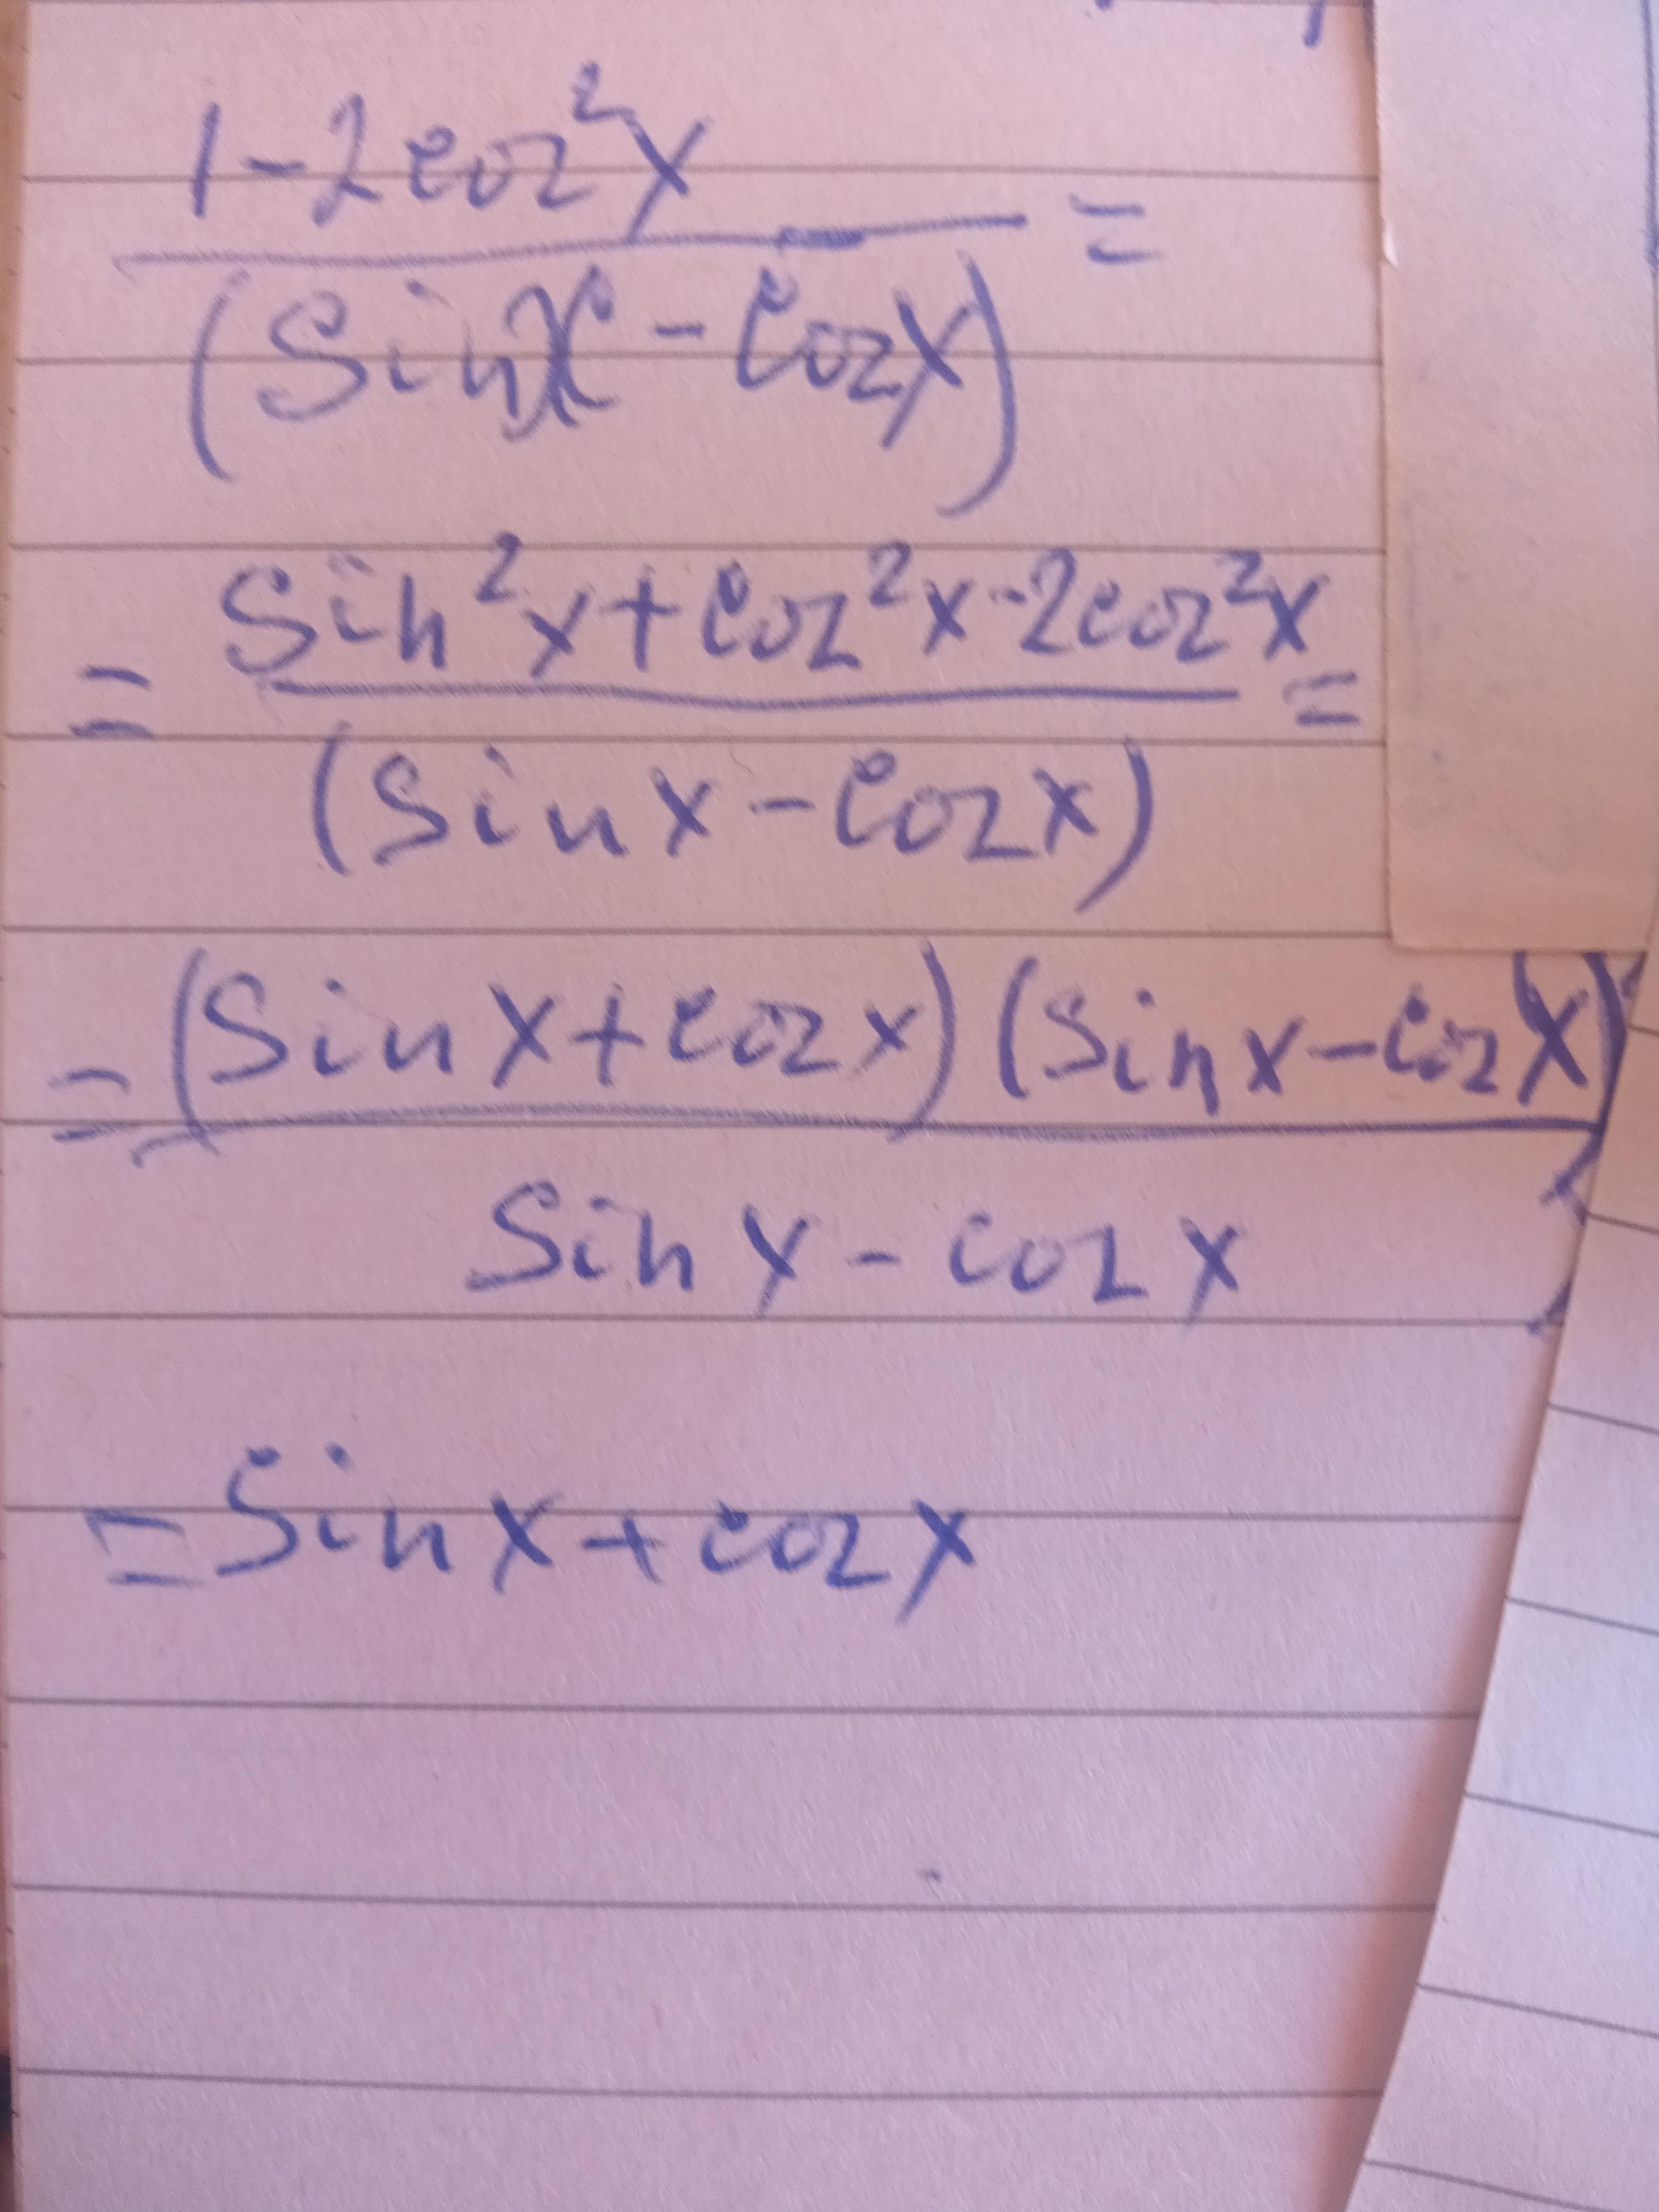 1-2coz²x
(Sinx - Cozx) =
= Sin²x+Coz²x-2coz²x =
(Sinx-Cozx)
= (Sinx+cozx)(Sinx-Cozx)
Sinx - cozx
= Sinx+cozx